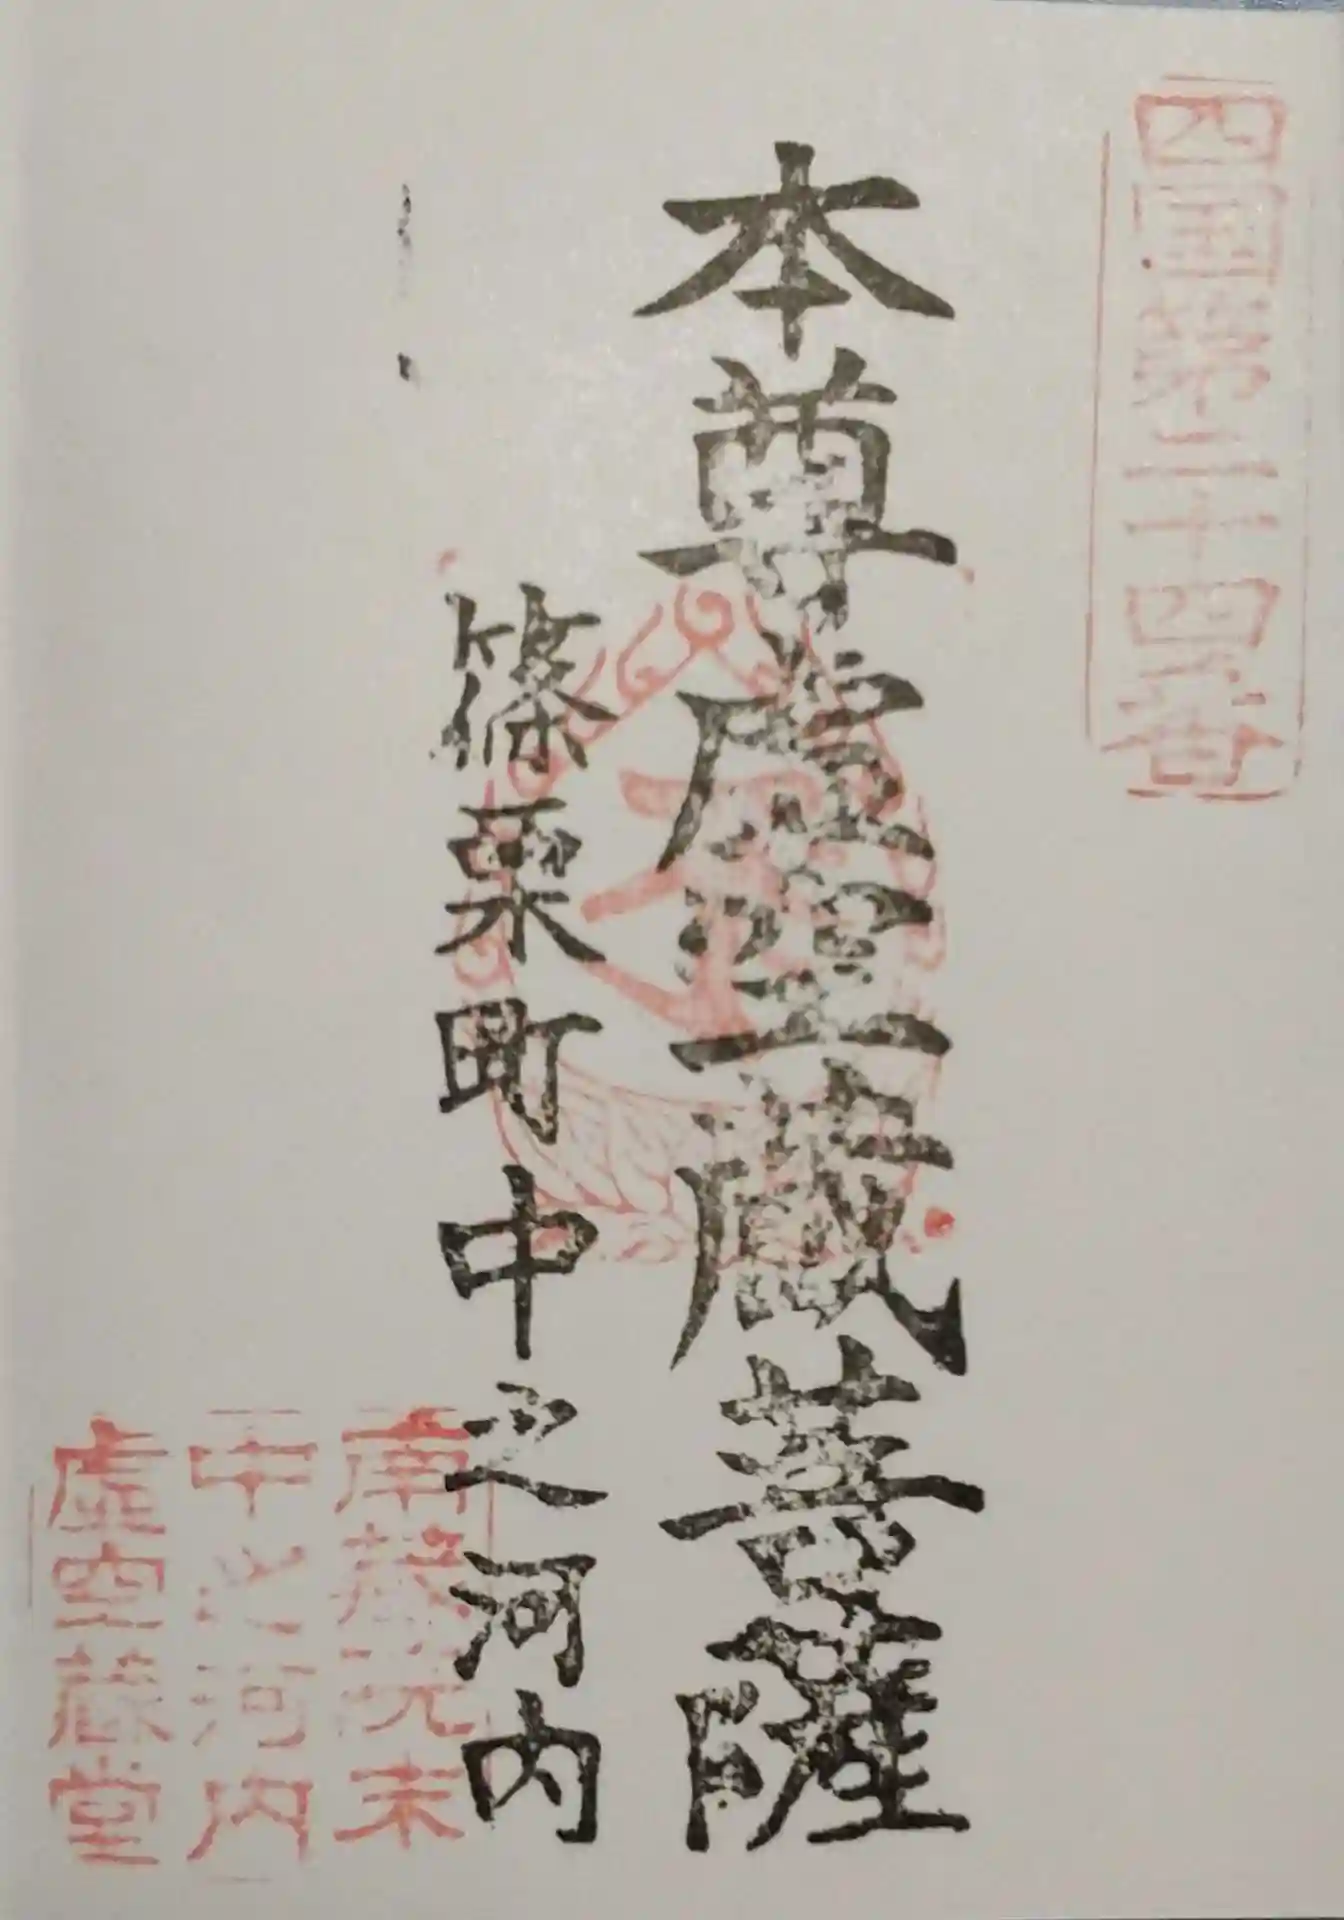 四国第二十四番
本尊虚空蔵菩薩
篠栗町中之河内
南蔵院末
中之河内
虚空蔵堂